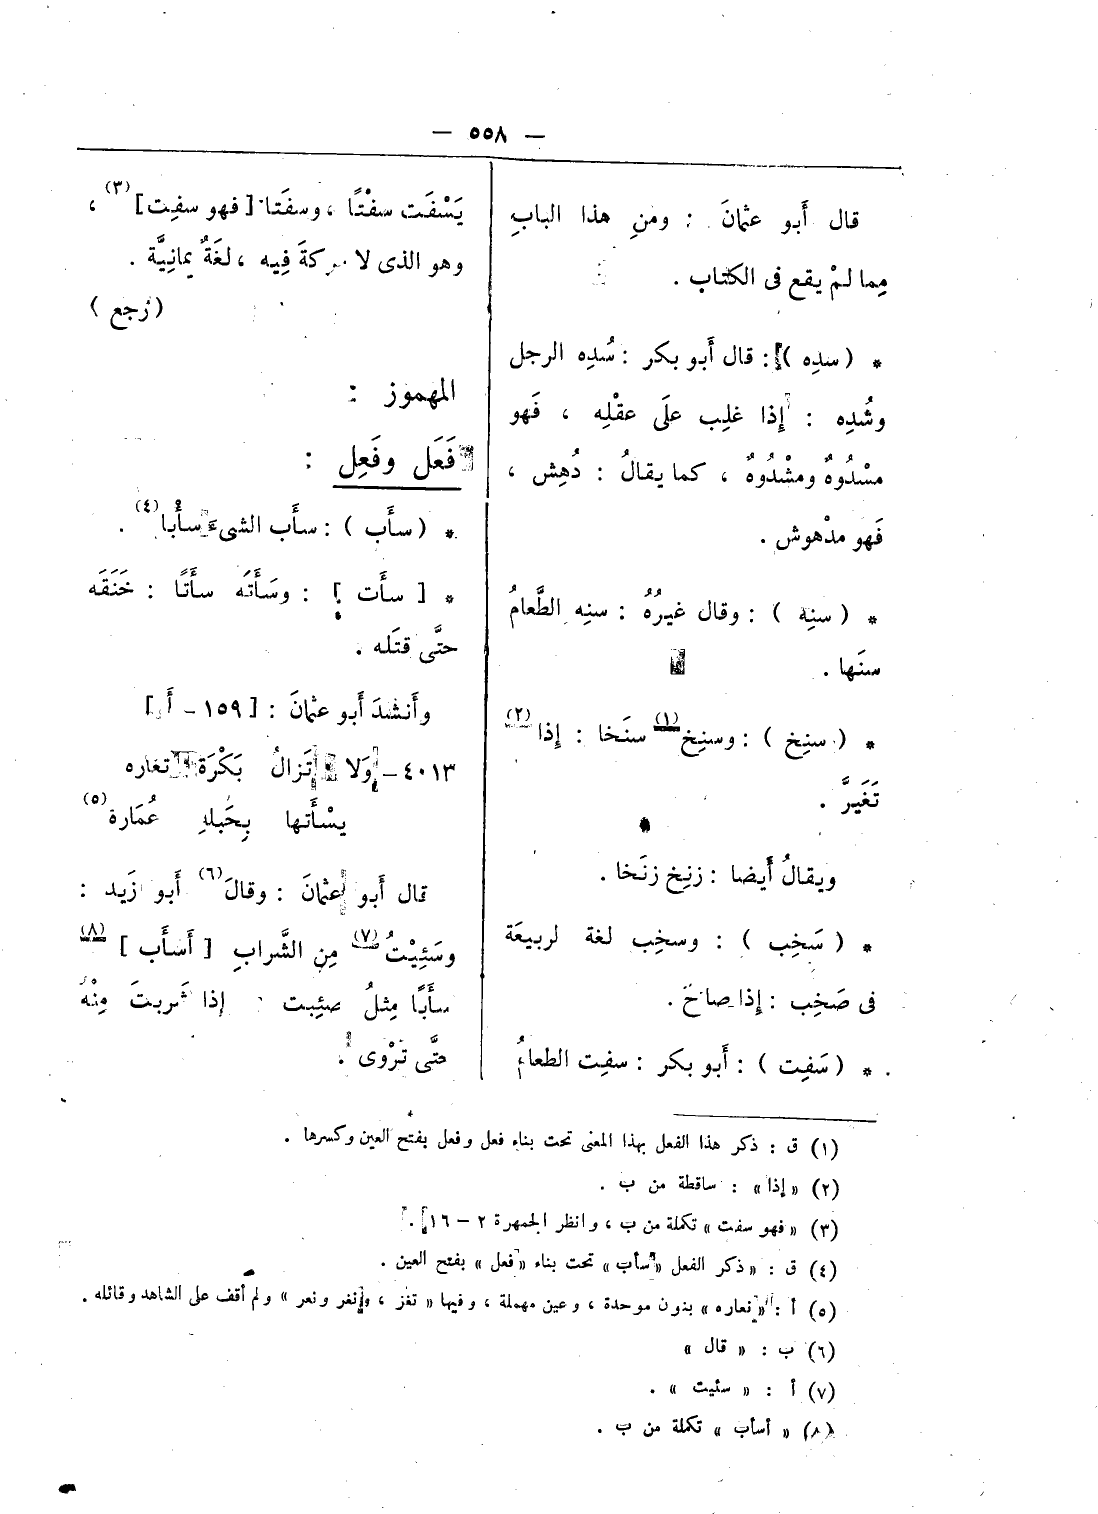 — ٥٥٨ —
قال أَبو عثمانَ : ومنِ هذا البابِ
مِما لمْ يقع فى الكتاب .
* ( سدِه ) : قال أَبو بكر : سُدِه الرجل
وشُدِه : إِذا غلِب علَى عقْلِه ، فَهو
مسْدُوهٌ ومشْدُوهٌ ، كما يقالُ : دُهِش ،
فَهو مدْهوش .
* ( سنِه ) : وقال غيرُهُ : سنِه الطَّعامُ
سنَها .
* ( سنِخ ) : وسنِخ (١) سنَخا : إِذا (٢)
تَغَيرَّ .
ويقالُ أَيضا : زنِخ زنَخا .
* ( سَخِب ) : وسخِب لغة لربيعَة
فى صَخِب : إِذا صاخَ .
* ( سَفِت ) : أَبو بكر : سفِت الطعامُ
يَسْفَت سفْتًا ، وسفَتا [ فهو سفِت ] (٣) ،
وهو الذى لا بركةَ فِيه ، لغَةٌ يمانِيَّة .
( رجع )
المهموز :
فَعَل وفَعِل :
* ( سأَب ) : سأَب الشىء سأْبا (٤) .
* [ سأَت ] : وسَأَتَه سأَتًا : خَنَقَه
حتَّى قتَله .
وأَنشدَ أَبو عثمانَ : [ ١٥٩ – أ ]
٤٠١٣ – وَلا تَزالُ بَكْرَة تغاره
يسْأَتها بِحَبلهِ عُمَارة (٥)
قال أَبو عثمانَ : وقالَ (٦) أَبو زَيد :
وسَئِيْتُ (٧) مِن الشَّرابِ [ أَسأَب ] (٨)
سأَبًا مِثلُ صئِبت : إذا شَربتَ مِنْهُ
حتَّى تَرْوى .
(١) ق : ذكر هذا الفعل بهذا المعنى تحت بناء فعل وفعل بفتح العين وكسرها .
(٢) « إذا » : ساقطة من ب .
(٣) « فهو سفت » تكملة من ب ، وانظر الجمهرة ٢ – ١٦ .
(٤) ق : « ذكر الفعل « سأب » تحت بناء « فعل » بفتح العين .
(٥) أ : « نعاره » بنون موحدة ، وعين مهملة ، وفيها « تغز ، ونغر ونعر » ولم أقف على الشاهد وقائله .
(٦) ب : « قال »
(٧) أ : « سئيت » .
(٨) « أسأب » تكملة من ب .